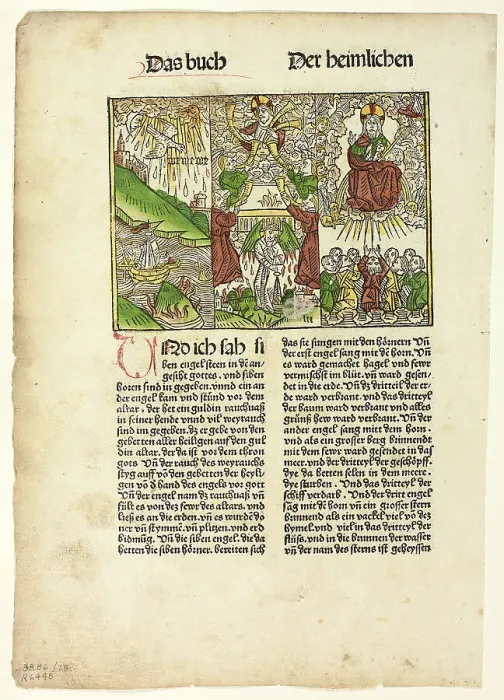 Das buch
Der heimlichen
UNd ich sah si
ben engel steen in dē an⸗
gesiht gottes . vnd siben
horen sind in gegeben. vnnd ein an
der engel kam vnd stůnd vor dem
altar . der het ein guldin rauchuaß
in seiner hende vnnd vil weyrauch
sind im gegeben. dz er gebe von den
gebetten aller heiligen auff den gul
din altar. der da ist vor dem thron
gots Vn̄ der rauch des weyrauchs
styg auff vō den gebetten der heyli⸗
gen vō d hand des engels vor gott
Vn̄ der engel nam dz rauchuaß vn̄
fült es von dez fewr des altars. vnd
ließ es an die erden. vn̄ es wurdē do
ner vn̄ stymmē. vn̄ plitzen. vnd erd
bidmūg. Vn̄ die siben engel. die da
hetten die siben hörner. bereiten sich
das sie sungen mit den hörnern Vn̄
der erst engel sang mit dē horn. Vn̄
es ward gemacht hagel vnd fewr
vermischt in blůt. vn̄ ward gesen⸗
det in die erde. Vn̄ dz dritteil der er⸗
de ward verbrant. vnd das dritteyl
der baum ward verbrant vnd alles
grünß hew ward verbrant. Vn̄ der
ander engel sang mit dem horn .
vnd als ein grosser berg brinnendt
mit dem fewr ward gesendet in das
meer. vnd der dritteyl der geschöpff.
dye da hetten selen in dem meere .
dye sturben . Vnd das dritteyl der
schiff verdarb . Vnd der dritt engel
sāg mit dē horn vn̄ ein grosser stern
brinnend als ein vackel viel vō dez
hymel. vnd viel in das dritteyl der
flüss. vnd in die brunnen der wasser
vn̄ der nam des sterns ist geheyssen
38.86/28
R6448